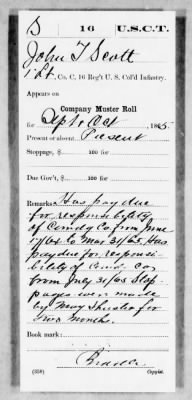 S 16 U.S.C.T.
John T Scott
1 Lt., Co. C, 16 Reg't U. S. Col'd Infantry.
Appears on
Company Muster Roll
for Sept & Oct, 1865.
Present or absent Present
Stoppage, $ 100 for
Due Gov't, $ 100 for
Remarks: Has pay due
for responsibility
of Comdg Co. from June
1/64 to Mar 31/65. Has
pay due for responsi
bility of Comd. Co.
from July 31/65 Stop
pages were made
by Maj
for
two months.
Book mark:
(358) Copyist.